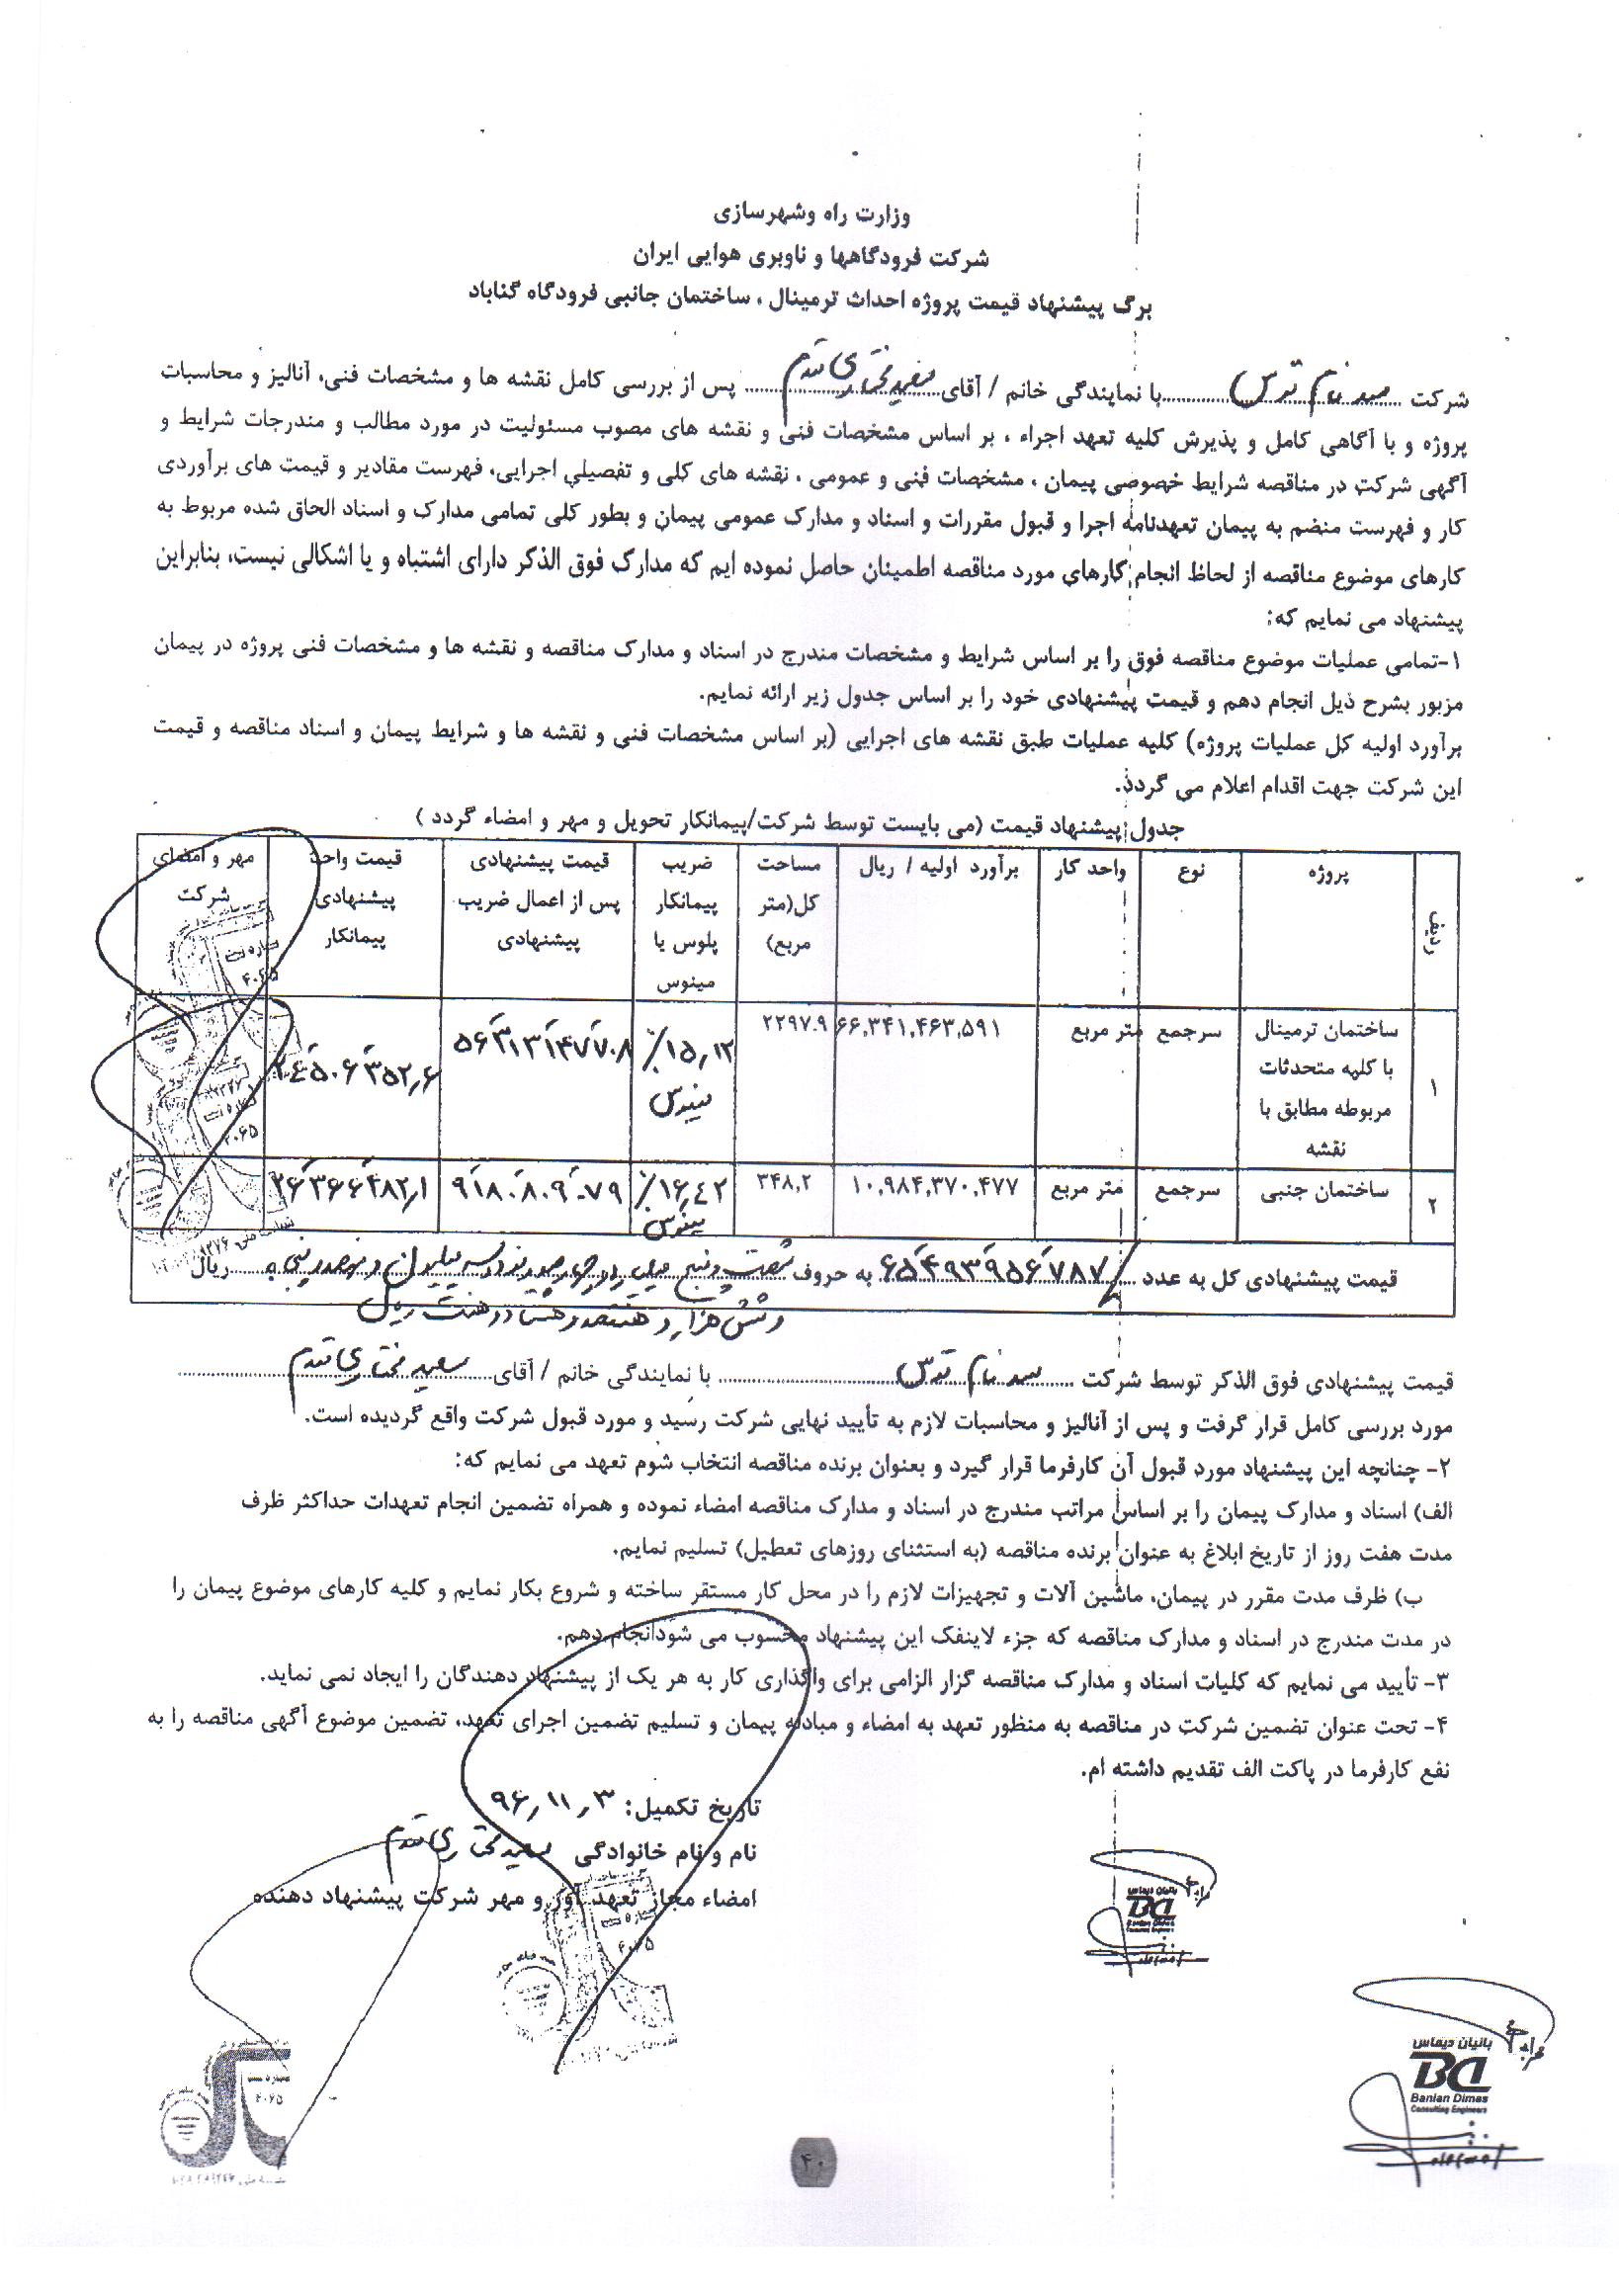 وزارت راه وشهرسازی
شرکت فرودگاهها و ناوبری هوایی ایران
برگ پیشنهاد قیمت پروژه احداث ترمینال ، ساختمان جانبی فرودگاه گناباد
شرکت ........ با نمایندگی خانم / آقای ........ پس از بررسی کامل نقشه ها و مشخصات فنی، آنالیز و محاسبات
پروژه و با آگاهی کامل و پذیرش کلیه تعهد اجراء ، بر اساس مشخصات فنی و نقشه های مصوب مسئولیت در مورد مطالب و مندرجات شرایط و
آگهی شرکت در مناقصه شرایط خصوصی پیمان ، مشخصات فنی و عمومی ، نقشه های کلی و تفصیلی اجرایی، فهرست مقادیر و قیمت های برآوردی
کار و فهرست منضم به پیمان تعهدنامه اجرا و قبول مقررات و اسناد و مدارک عمومی پیمان و بطور کلی تمامی مدارک و اسناد الحاق شده مربوط به
کارهای موضوع مناقصه از لحاظ انجام کارهای مورد مناقصه اطمینان حاصل نموده ایم که مدارک فوق الذکر دارای اشتباه و یا اشکالی نیست، بنابراین
پیشنهاد می نمایم که:
۱-تمامی عملیات موضوع مناقصه فوق را بر اساس شرایط و مشخصات مندرج در اسناد و مدارک مناقصه و نقشه ها و مشخصات فنی پروژه در پیمان
مزبور بشرح ذیل انجام دهم و قیمت پیشنهادی خود را بر اساس جدول زیر ارائه نمایم.
برآورد اولیه کل عملیات پروژه) کلیه عملیات طبق نقشه های اجرایی (بر اساس مشخصات فنی و نقشه ها و شرایط پیمان و اسناد مناقصه و قیمت
این شرکت جهت اقدام اعلام می گردد.
جدول پیشنهاد قیمت (می بایست توسط شرکت/پیمانکار تحویل و مهر و امضاء گردد )
ردیف پروژه نوع واحد کار برآورد اولیه / ریال مساحت کل(متر مربع) ضریب پیمانکار پلوس یا مینوس قیمت پیشنهادی پس از اعمال ضریب پیشنهادی قیمت واحد پیشنهادی پیمانکار مهر و امضای شرکت
۱ ساختمان ترمینال با کلیه متحدثات مربوطه مطابق با نقشه سرجمع متر مربع ۶۶,۳۴۱,۴۶۳,۵۹۱ ۲۲۹۷.۹ ٪۱۵٫۱۲ مینوس ۵۶۳۱۳۱۴۷۷۰۸ ۲۴۵۰۶۳۵۲٫۶
۲ ساختمان جنبی سرجمع متر مربع ۱۰,۹۸۴,۳۷۰,۴۷۷ ۳۴۸,۲ ٪۱۶٫۴۲ مینوس ۹۱۸۰۸۰۹۰۷۹ ۲۶۳۶۶۴۸۲٫۱
قیمت پیشنهادی کل به عدد ۶۵۴۹۳۹۵۶۷۸۷ به حروف شصت و پنج میلیارد و چهارصد و نود و سه میلیون و نهصد و پنجاه ریال
و شش هزار و هفتصد و هشتاد و هفت ریال
قیمت پیشنهادی فوق الذکر توسط شرکت ........ با نمایندگی خانم / آقای ........
مورد بررسی کامل قرار گرفت و پس از آنالیز و محاسبات لازم به تأیید نهایی شرکت رسید و مورد قبول شرکت واقع گردیده است.
۲- چنانچه این پیشنهاد مورد قبول آن کارفرما قرار گیرد و بعنوان برنده مناقصه انتخاب شوم تعهد می نمایم که:
الف) اسناد و مدارک پیمان را بر اساس مراتب مندرج در اسناد و مدارک مناقصه امضاء نموده و همراه تضمین انجام تعهدات حداکثر ظرف
مدت هفت روز از تاریخ ابلاغ به عنوان برنده مناقصه (به استثنای روزهای تعطیل) تسلیم نمایم.
ب) ظرف مدت مقرر در پیمان، ماشین آلات و تجهیزات لازم را در محل کار مستقر ساخته و شروع بکار نمایم و کلیه کارهای موضوع پیمان را
در مدت مندرج در اسناد و مدارک مناقصه که جزء لاینفک این پیشنهاد محسوب می شودانجام دهم.
۳- تأیید می نمایم که کلیات اسناد و مدارک مناقصه گزار الزامی برای واگذاری کار به هر یک از پیشنهاد دهندگان را ایجاد نمی نماید.
۴- تحت عنوان تضمین شرکت در مناقصه به منظور تعهد به امضاء و مبادله پیمان و تسلیم تضمین اجرای تعهد، تضمین موضوع آگهی مناقصه را به
نفع کارفرما در پاکت الف تقدیم داشته ام.
تاریخ تکمیل: ۹۶٫۱۱٫۳
نام و نام خانوادگی
امضاء مجاز تعهد آور و مهر شرکت پیشنهاد دهنده
بانیان دیماس
BD
Banian Dimas
Consulting Engineers
۴۰۶۵
۴۰